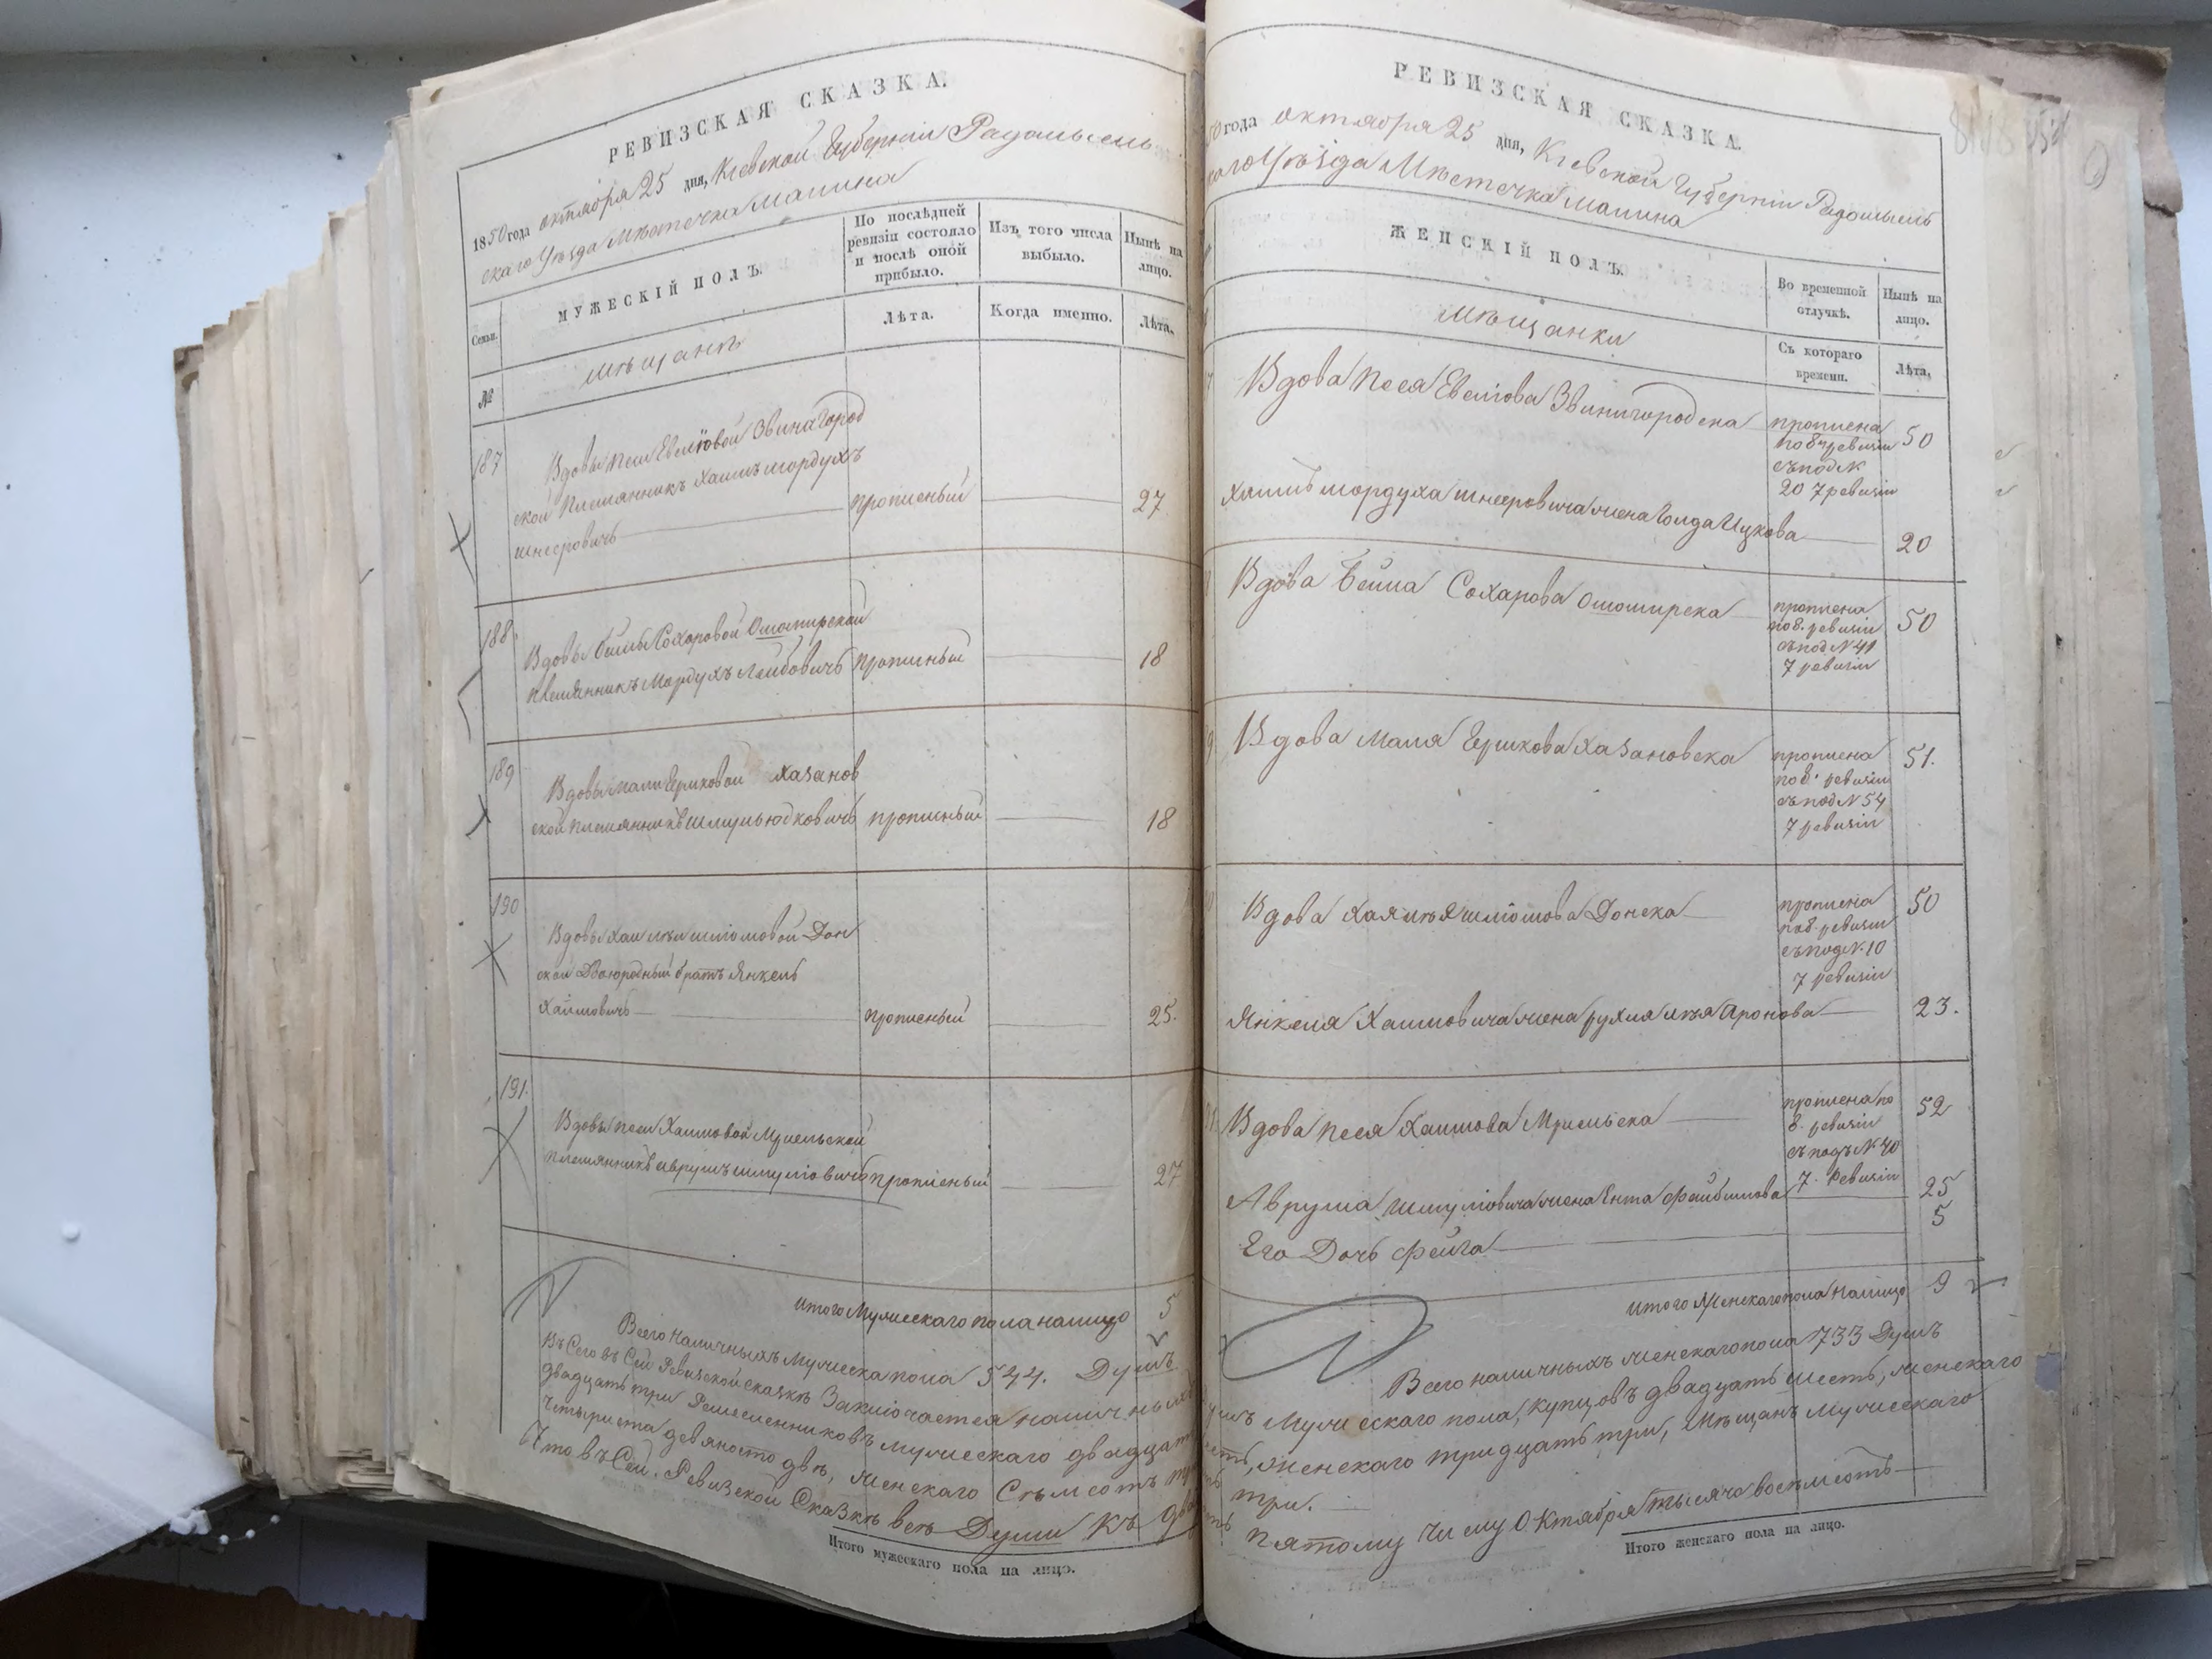 РЕВИЗСКАЯ СКАЗКА.
1850 года октября 25 дня, Кіевской Губерніи Радомысль
скаго Уѣзда Мѣстечка Малина
Семьи.
МУЖЕСКІЙ ПОЛЪ.
По послѣдней
ревизіи состояло
и послѣ оной
прибыло.
Изъ того числа
выбыло.
Нынѣ на
лицо.
№
мѣщанъ
Лѣта.
Когда именно.
Лѣта.
187
Вдовы Песи Евелiовой Звинагород
ской Племянникъ Хаимъ Мордухъ
Шнееровичъ
прописный
27
188.
Вдовы Бейлы Сохоровой
племянникъ Мордухъ Лейбовичъ
прописный
18
189
Вдовы Мали Ериковой Хазанов
ской племянникъ Шмуль Юдковичъ
прописный
18
190
Вдовы Хаи Леи Шліомовой Дон
ской Двоюродный братъ Янкель
Хаимовичъ
прописный
25.
191.
Вдовы Песи Хаимовой
племянникъ Аврумъ Шмуліовичъ
прописный
27
итого Мужескаго пола налицо 5
Всего Наличныхъ Мужеска пола 544. Душъ
Въ Сей Ревизской сказкѣ Заключается наличныхъ
двадцать три Ремесленниковъ мужескаго двадцать
четыриста девяносто двѣ, женскаго Семьсотъ
Что въ Сей Ревизской Сказкѣ всѣ Души къ
Итого мужескаго пола на лицо.
РЕВИЗСКАЯ СКАЗКА.
50 года октября 25 дня, Кіевской Губерніи Радомысль
скаго Уѣзда Мѣстечка Малина
ЖЕНСКІЙ ПОЛЪ.
Во временной
отлучкѣ.
Нынѣ на
лицо.
мѣщанки
Съ котораго
времени.
Лѣта.
Вдова Песя Евелiова Звинигородска
прописна
по 8й ревизіи
съ под №
20 7 ревизіи
50
Хаимъ Мордуха Шнееровича жена Голда Ицкова
20
Вдова Бейла Сохарова
прописна
по 8. ревизіи
съ под № 41
7 ревизіи
50
Вдова Маля Ерикова Хазановска
прописна
по 8. ревизіи
съ под № 54
7 ревизіи
51.
Вдова Хая Лѣя Шліомова Донска
прописна
по 8. ревизіи
съ под №. 10
7 ревизіи
50
Янкеля Хаимовича жена Рухля Лѣя Аронова
23.
Вдова Песя Хаимова
прописна по
8. ревизіи
съ подъ № 40
7. Ревизіи
52
Аврума Шмуліовича жена Ента Файбишова
25
Его Дочь Фейга
5
итого Женскаго пола налицо 9
Всего наличныхъ женскаго пола 733 Душъ
Мужескаго пола, купцовъ двадцать шесть, женскаго
женскаго тридцать три, Мѣщанъ Мужескаго
три.
пятому числу Октября тысяча восемсотъ
Итого женскаго пола на лицо.